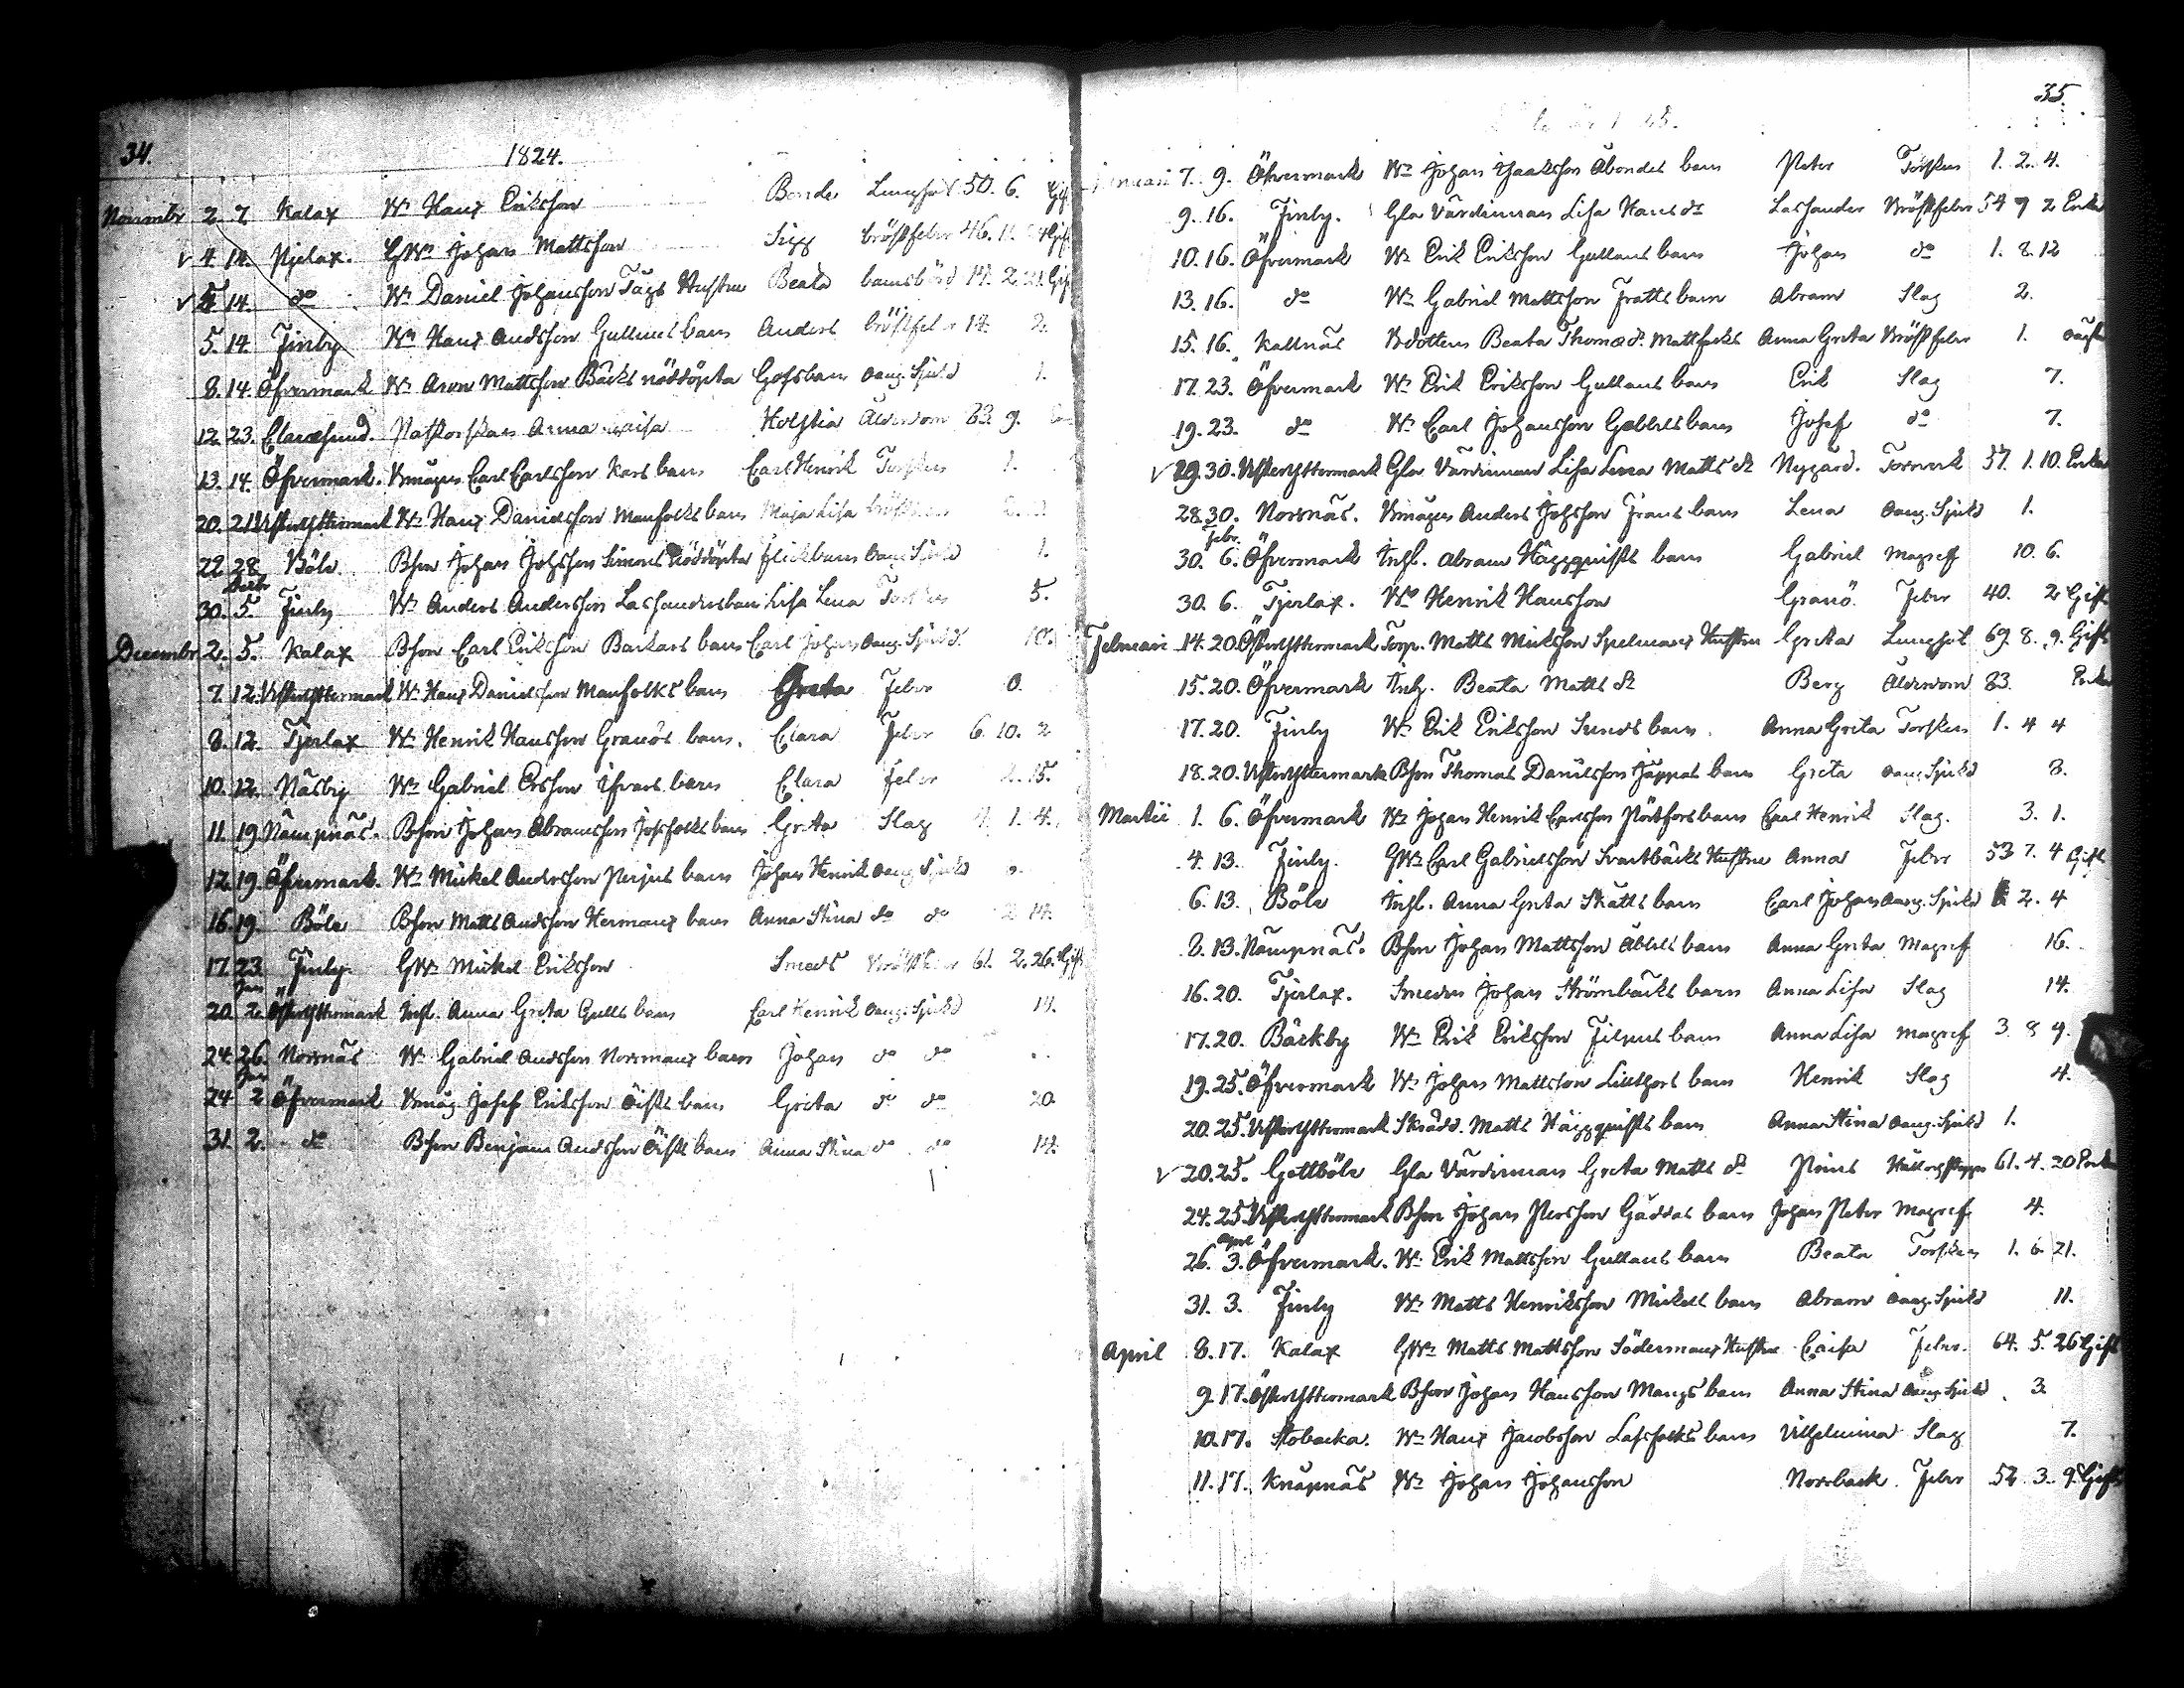 34.
1824.
Novembr 2. 7. Kalax Wn Hans Eriksson Bonde Lungsot 50. 6. Gift
4. 14. Pjelax. GWn Johan Mattsson Sigg bröstfeber 46. 11. Gift
14. do Wn Daniel Johansson Tågs Hustru Beata barnsbörd 2. 21. Gift
5. 14. Finby Wn Hans Andsson Gullmes barn Anders bröstfeber 14. 2.
8. 14. Öfvermark Wn Aron Mattsson Bäcks nöddöpta Gossbarn oang. Sjukd 1.
12. 23. Anna Caisa Holstia Ålderdom 83. 9.
13. 14. Öfvermark. Bmågen Carl Carlsson Kars barn Carl Henrik Torsken 1.
20. 21. Westerhyttermark Wn Hans Danielsson Manfolks barn Maja Lisa
22. 28. Böle Bson Johan Johsson Simons nöddöpta flickbarn oang Sjukd 1.
30. Decbr 5. Finby Wn Anders Andersson Lassanders barn Lisa Lena Torsken 5.
Decembr 2. 5. Kalax Bson Carl Eriksson Backars barn Carl Johan oang. Sjukd. 10.
7. 12. Westerhyttermark Wn Hans Danielsson Manfolks barn Greta Feber 0.
8. 12. Tjerlax Wn Henrik Hansson Granös barn. Clara Feber 6. 10. 2
10. 12. Näsby Wn Gabriel Ersson Ifvars barn Clara feber 15.
11. 19. Nämpnäs. Bson Johan Abramsson Josfolks barn Greta Slag 1. 4.
12. 19. Öfvermark. Wn Mickel Andersson Perjus barn Johan Henrik oang Sjukd
16. 19. Böle Bson Matts Andsson Hermans barn Anna Stina do do 2 14.
17. 23. Finby. GWn Mickel Eriksson Smeds bröstfeber 61. 2. 26. Gift
20. Jan 2. Österhyttermark Inh. Anna Greta Gulls barn Carl Henrik oang. Sjukd 14.
24. 26. Norrnäs Wn Gabriel Andsson Norrmans barn Johan do do
24. Jan 2 Öfvermark Bmåg. Josef Eriksson Öists barn Greta do do 20.
31. 2. do Bson Benjam Andsson Öists barn Anna Stina do do 14.
35.
Januari 7. 9. Öfvermark Wn Johan Isaaksson Åbondes barn Peter Torsken 1. 2. 4.
9. 16. Finby. Gla Värdinnan Lisa Hans dr Lassander Bröstfeber 54 9 2 Enka
10. 16. Öfvermark Wn Erik Eriksson Gullans barn Johan do 1. 8. 12
13. 16. do Wn Gabriel Mattsson Fratts barn Abram Slag 2.
15. 16. Kallnäs Bdottern Beata Thomæ dr. Mattfolks Anna Greta Bröstfeber 1.
17. 23. Öfvermark Wn Erik Eriksson Gullans barn Erik Slag 7.
19. 23. do Wn Carl Johansson Gabbels barn Josef do 7.
29. 30. Westerhyttermark Gla Värdinnan Lisa Lena Matts dr Nygård. Torrverk 57. 1. 10. Enka
28. 30. Norrnäs. Bmågen Anders Johsson Frants barn Lena oang. Sjukd 1.
30. Febr. 6. Öfvermark Inh. Abram Häggquists barn Gabriel Magref 10. 6.
30. 6. Tjerlax. Wn Henrik Hansson Granö. Feber 40. 2 Gift
Februari 14. 20. Österhyttermark Torp. Matts Mickson Spelmans Hustru Greta Lungsot 69. 8. 9. Gift
15. 20. Öfvermark Inh. Beata Matts dr Berg Ålderdom 83. Enka
17. 20. Finby Wn Erik Eriksson Sunds barn. Anna Greta Torsken 1. 4 4
18. 20. Westerhyttermark Bson Thomas Danielsson Jåppas barn Greta oang. Sjukd 8.
Martii 1. 6. Öfvermark Wn Johan Henrik Carlsson Pörtfors barn Carl Henrik Slag. 3. 1.
4. 13. Finby. GWn Carl Gabrielsson Svartbäcks Hustru Anna Feber 53 7. 4 Gift
6. 13. Böle Inh. Anna Greta Skatts barn Carl Johan oang. Sjukd 2. 4
8. 13. Nämpnäs. Bson Johan Mattsson Åbbels barn Anna Greta Magref 16.
16. 20. Tjerlax. Smeden Johan Strömbäcks barn Anna Lisa Slag 14.
17. 20. Bäckby Wn Erik Eriksson Filpus barn Anna Lisa Magref 3. 8 9.
19. 25. Öfvermark Wn Johan Mattsson Lillthors barn Henrik Slag 4.
20. 25. Westerhyttermark Skrädd. Matts Häggquists barn Anna Stina oang. Sjukd 1.
20. 25. Gottböle Gla Värdinnan Greta Matts dr Prins Håll och stygn 61. 4. 20 Enka
24. 25. Westerhyttermark Bson Johan Persson Gäddas barn Johan Peter Magref 4.
26. April 3. Öfvermark. Wn Erik Mattsson Gullans barn Beata Torsken 1. 6 21.
31. 3. Finby Wn Matts Henriksson Mickels barn Abram oang. Sjukd 11.
April 8. 17. Kalax GWn Matts Mattsson Södermans Hustru Caisa Feber. 64. 5. 26 Gift
9. 17. Österhyttermark Bson Johan Hansson Mangs barn Anna Stina oang. Sjukd 3.
10. 17. Stobacka. Wn Hans Jacobsson Lassfolks barn Vilhelmina Slag 7.
11. 17. Knåpnäs Wn Johan Johansson Norrback. Feber 52. 3. 9. Gift